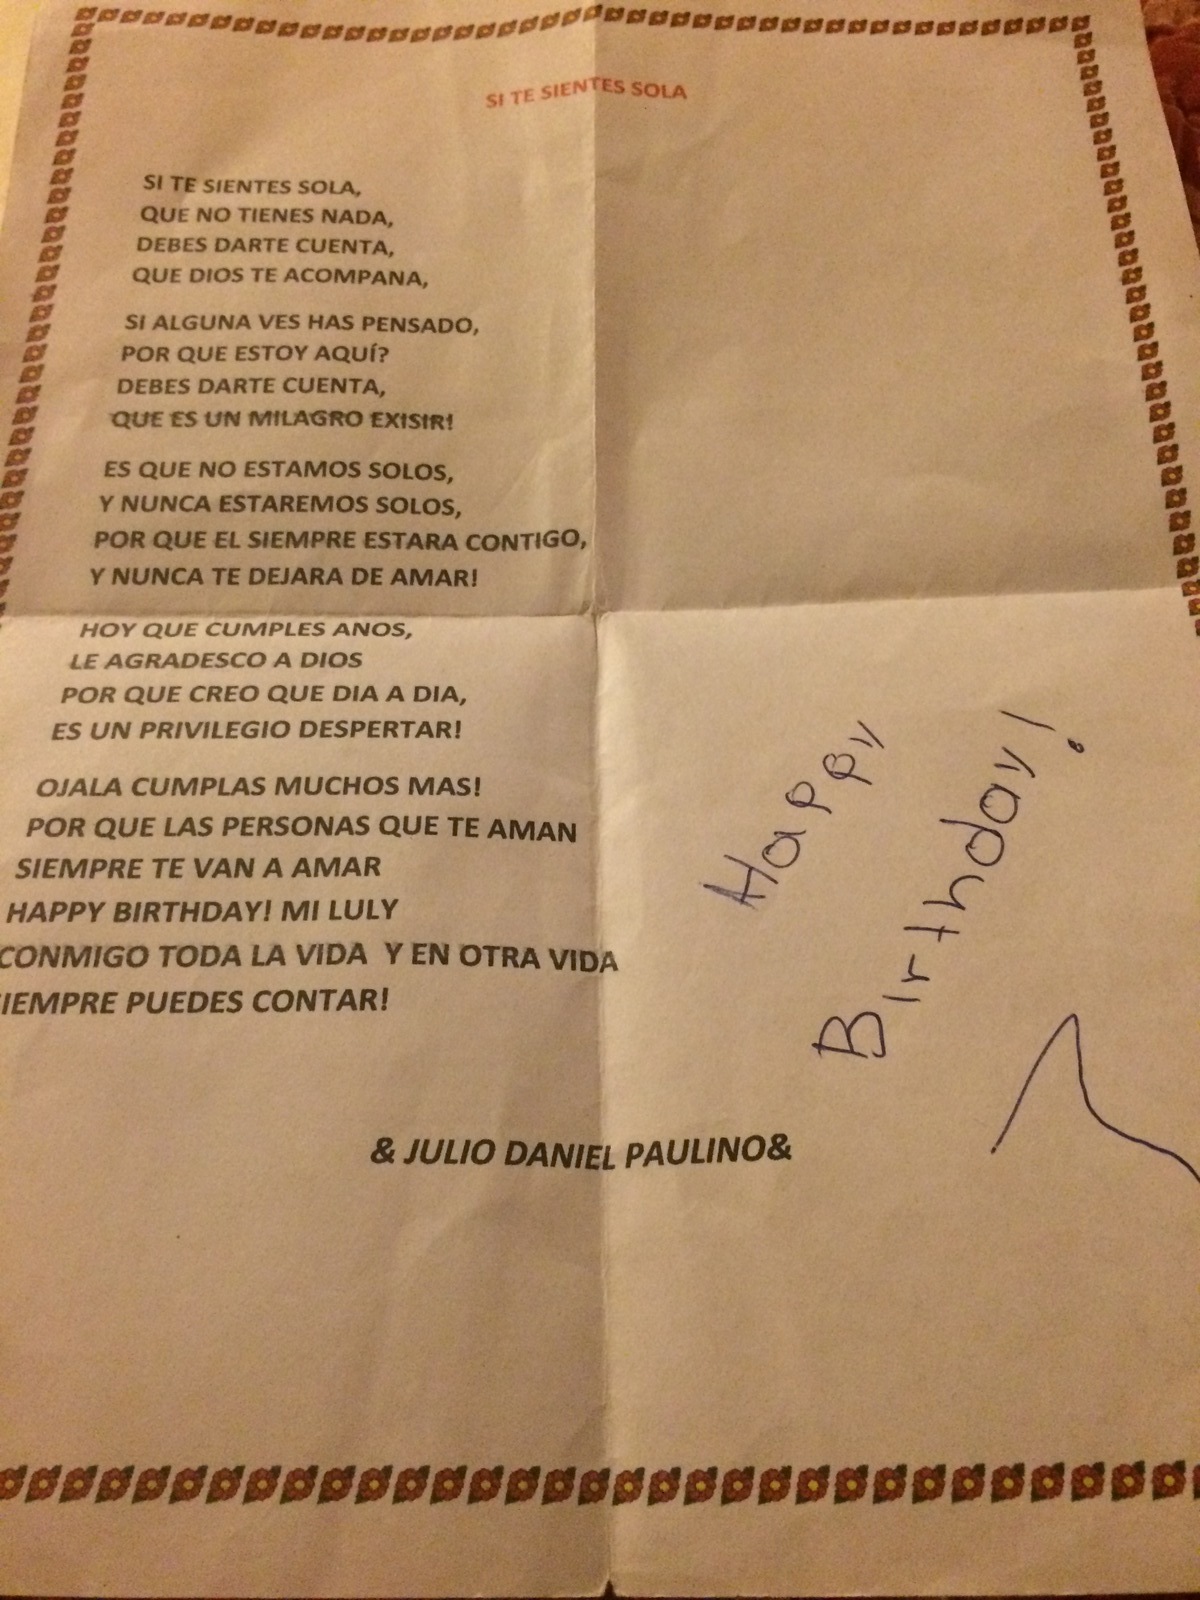 SI TE SIENTES SOLA
SI TE SIENTES SOLA,
QUE NO TIENES NADA,
DEBES DARTE CUENTA,
QUE DIOS TE ACOMPANA,
SI ALGUNA VES HAS PENSADO,
POR QUE ESTOY AQUÍ?
DEBES DARTE CUENTA,
QUE ES UN MILAGRO EXISIR!
ES QUE NO ESTAMOS SOLOS,
Y NUNCA ESTAREMOS SOLOS,
POR QUE EL SIEMPRE ESTARA CONTIGO,
Y NUNCA TE DEJARA DE AMAR!
HOY QUE CUMPLES ANOS,
LE AGRADESCO A DIOS
POR QUE CREO QUE DIA A DIA,
ES UN PRIVILEGIO DESPERTAR!
OJALA CUMPLAS MUCHOS MAS!
POR QUE LAS PERSONAS QUE TE AMAN
SIEMPRE TE VAN A AMAR
HAPPY BIRTHDAY! MI LULY
CONMIGO TODA LA VIDA Y EN OTRA VIDA
IEMPRE PUEDES CONTAR!
Happy
Birthday!
& JULIO DANIEL PAULINO&